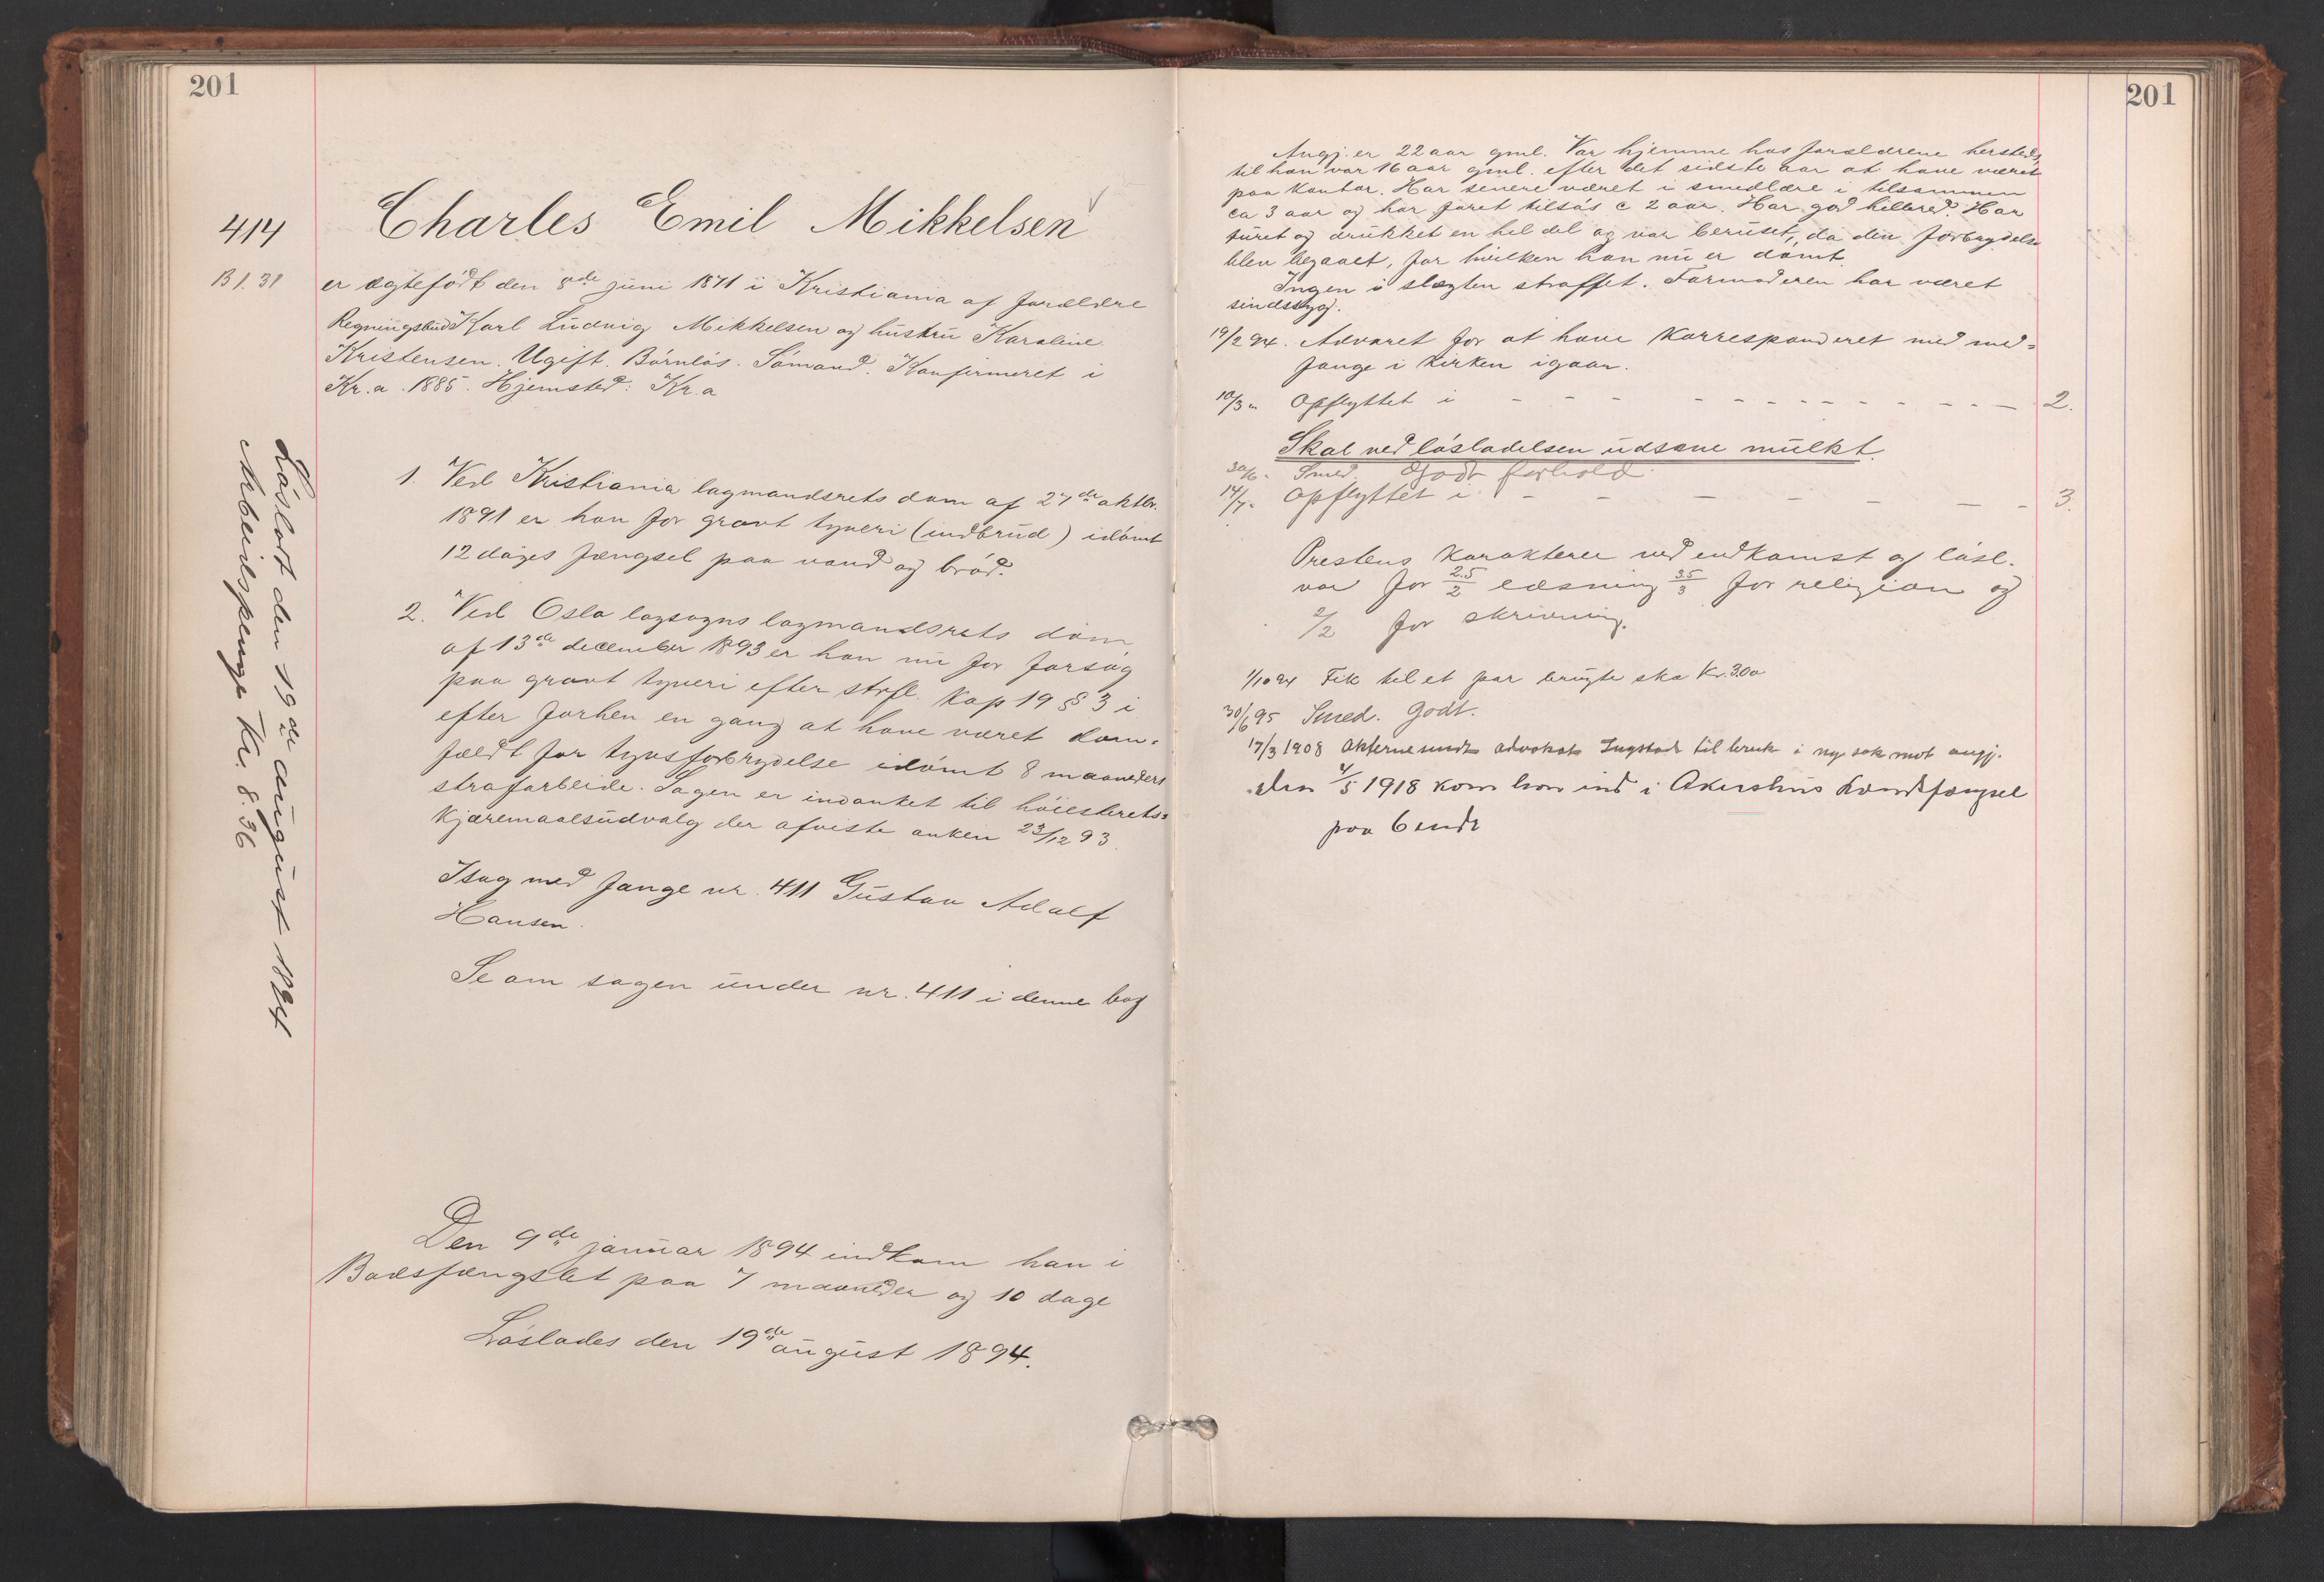 201
414
Charles Emil Mikkelsen
B 1. 31
er ægtefödt den 8de juni 1871 i Kristiania af forældre
Regningsbud Karl Ludvig Mikkelsen og hustru Karoline
Kristensen. Ugift. Börnlös. Sömand. Konfirmeret i
Kr.a. 1885. Hjemsted: Kr.a
Lösladt den 19de august 1894
Arbeidspenge Kr. 8.36
1. Ved Kristiania lagmandsrets dom af 27de oktbr.
1891 er han for grovt tyveri (indbrud) idömt
12 dages fængsel paa vand og bröd.
2. Ved Oslo lagsogns lagmandsrets dom
af 13de december 1893 er han nu for forsög
paa grovt tyveri efter strfl. Kap 19 § 3 i
efter forhen en gang at have været dom-
fældt for tyvsforbrydelse idömt 8 maaneders
strafarbeide. Sagen er indanket til höiesterets-
kjæremaalsudvalg der afviste anken 23/12 93.
I sag med fange nr. 411 Gustav Adolf
Hansen.
Se om sagen under nr. 411 i denne bog
Den 9de januar 1894 indkom han i
Bodsfængslet paa 7 maaneder og 10 dage
Löslades den 19de august 1894.
201
Angj. er 22 aar gml. Var hjemme hos forældrene hersteds,
til han var 16 aar gml. efter det sidste aar at have været
paa kontor. Har senere været i smedlære i tilsammen
ca 3 aar og har faret tilsös c 2 aar. Har god helbred. Har
turet og drukket en hel del og var beruset, da den forbrydelse
blev begaaet, for hvilken han nu er dömt.
Ingen i slægten straffet. Farmoderen har været
sindssyg.
19/2 94. Advaret for at have korresponderet med med-
fange i kirken igaar.
10/3 " Opflyttet i - - - - - - - - - - - - 2.
Skal ved lösladelsen udsone mulkt.
30/6 - Smed. Godt forhold
14/7 - Opflyttet i - - - - - - - 3.
Prestens karakterer ved indkomst og lösl.
var for 2.5/2 læsning 3.5/3 for religion og
2/2 for skrivning.
1/10 94 Fik til et par brugte sko Kr. 3.00
30/6 95 Smed. Godt.
17/3 1908 Akterne sendt advokat Ingstad til bruk i ny sak mot angj.
Den 4/5 1918 kom han ind i Akershus Landsfængsel
paa 6 mdr